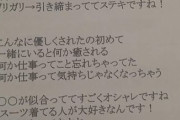 ガリガリ→引き締まっててステキですね！
こんなに優しくされたの初めて
一緒にいると何か癒される
何か仕事ってこと忘れちゃってた
何か仕事って気持ちじゃなくなっちゃう
〇〇が似合っててすごくオシャレですね
スーツ着てる人が大好きなんです！